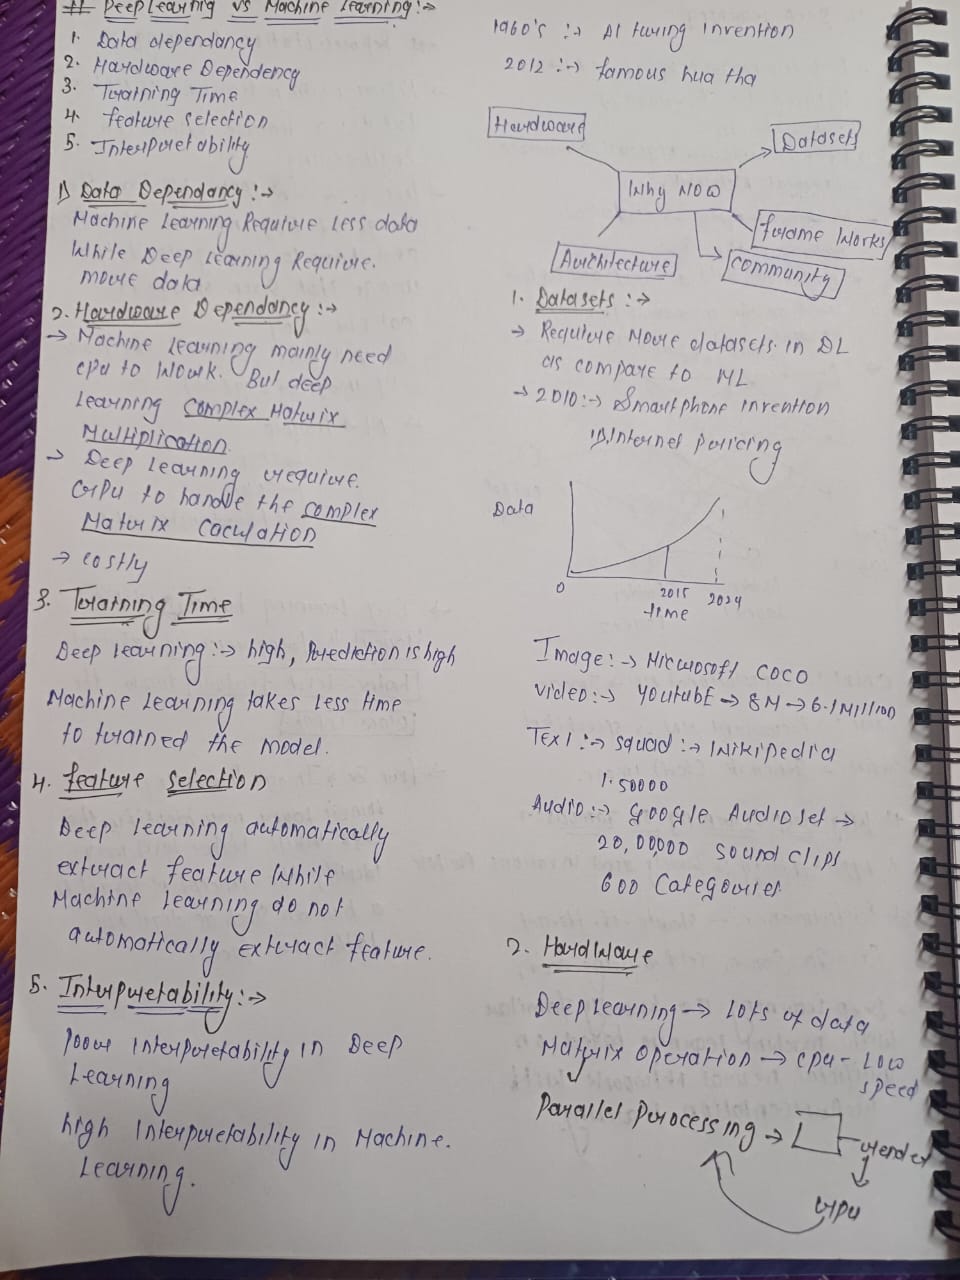 # Deep Learnig vs Machine Learning :→
1. Data dependancy
2. Hardware Dependency
3. Training Time
4. feature selection
5. Interpretability
1) Data Dependancy :→
Machine Learning Require Less data
While Deep Learning Require.
more data
2. Hardware Dependancy :→
→ Machine Learning mainly need
cpu to work. But deep
Learning Complex Matrix
Multiplication.
→ Deep Learning require.
GPU to handle the complex
Matrix Caculation
→ costly
3. Training Time
Deep Learning :→ high, Prediction is high
Machine Learning takes Less time
to trained the model.
4. feature selection
Deep Learning automatically
extract feature While
Machine Learning do not
automatically extract feature.
5. Interpretability :→
poor Interpretability in Deep
Learning
high Interpretability in Machine.
Learning.
1960's :→ AI turing Invention
2012 :→ famous hua tha
Hardware
Datasets
Why NOW
frame Works
Architecture
Community
1. Datasets :→
→ Require More datasets in DL
as compare to ML
→ 2010 :→ Smartphone invention
Internet pricing
Data
0
2015
2024
time
Image :→ Microsoft COCO
Video :→ YoutubE → 8M → 6.1 Million
Text :→ squad :→ Wikipedia
1.50000
Audio :→ google Audio set →
20,00000 sound clips
600 Categories
2. Hardware
Deep Learning → Lots of data
Matrix Operation → cpu - Low
speed
Parallel Processing →
render
GPU